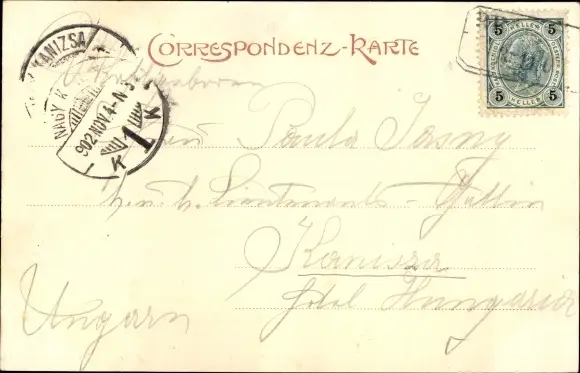 CORRESPONDENZ-KARTE
5 5
HELLER
5 5
HELLER
KANIZSA
NAGY K
902 NOV. 4 - N 3
K 1 M
Paula Jasny
k. u. k. Lieutenants-Gattin
Kanisza
Hotel Hungaria
Ungarn